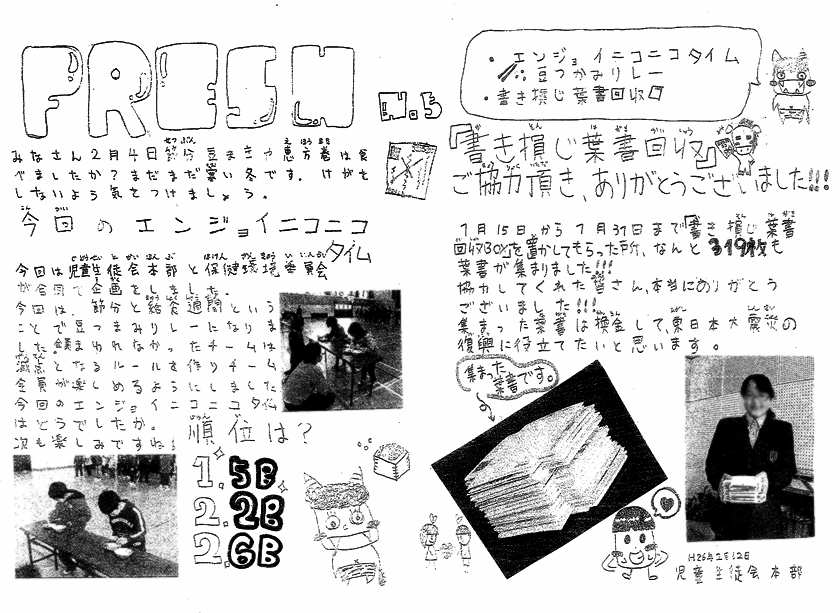 PRESH
N.5
みなさん2月4日節分豆まきや恵方巻は食
べましたか？まだまだ寒い冬です。けがを
しないよう気をつけましょう。
今回のエンジョイニコニコ
タイム
今回は児童生徒会本部と保健環境委員会
が合同で企画をしました。
今回は、節分と給食週間という
ことで豆つまみリレーになりま
した。
チームは
となるルールを作りチーム
全員が楽しめるようにしました
今回のエンジョイニコニコタイム
はどうでしたか。
次も楽しみですね！
順位は？
1.5B
2.2B
2.6B
・エンジョイニコニコタイム
豆つかみリレー
・書き損じ葉書回収
『書き損じ葉書回収』
ご協力頂き、ありがとうございました!!!
1月15日から1月31日まで『書き損じ葉書
回収BOX』を置かしてもらった所、なんと319枚も
葉書が集まりました!!!
協力してくれた皆さん、本当にありがとう
ございました!!!
集まった葉書は換金して、東日本大震災の
復興に役立てたいと思います。
集まった
葉書です。
H26年2月12日
児童生徒会本部